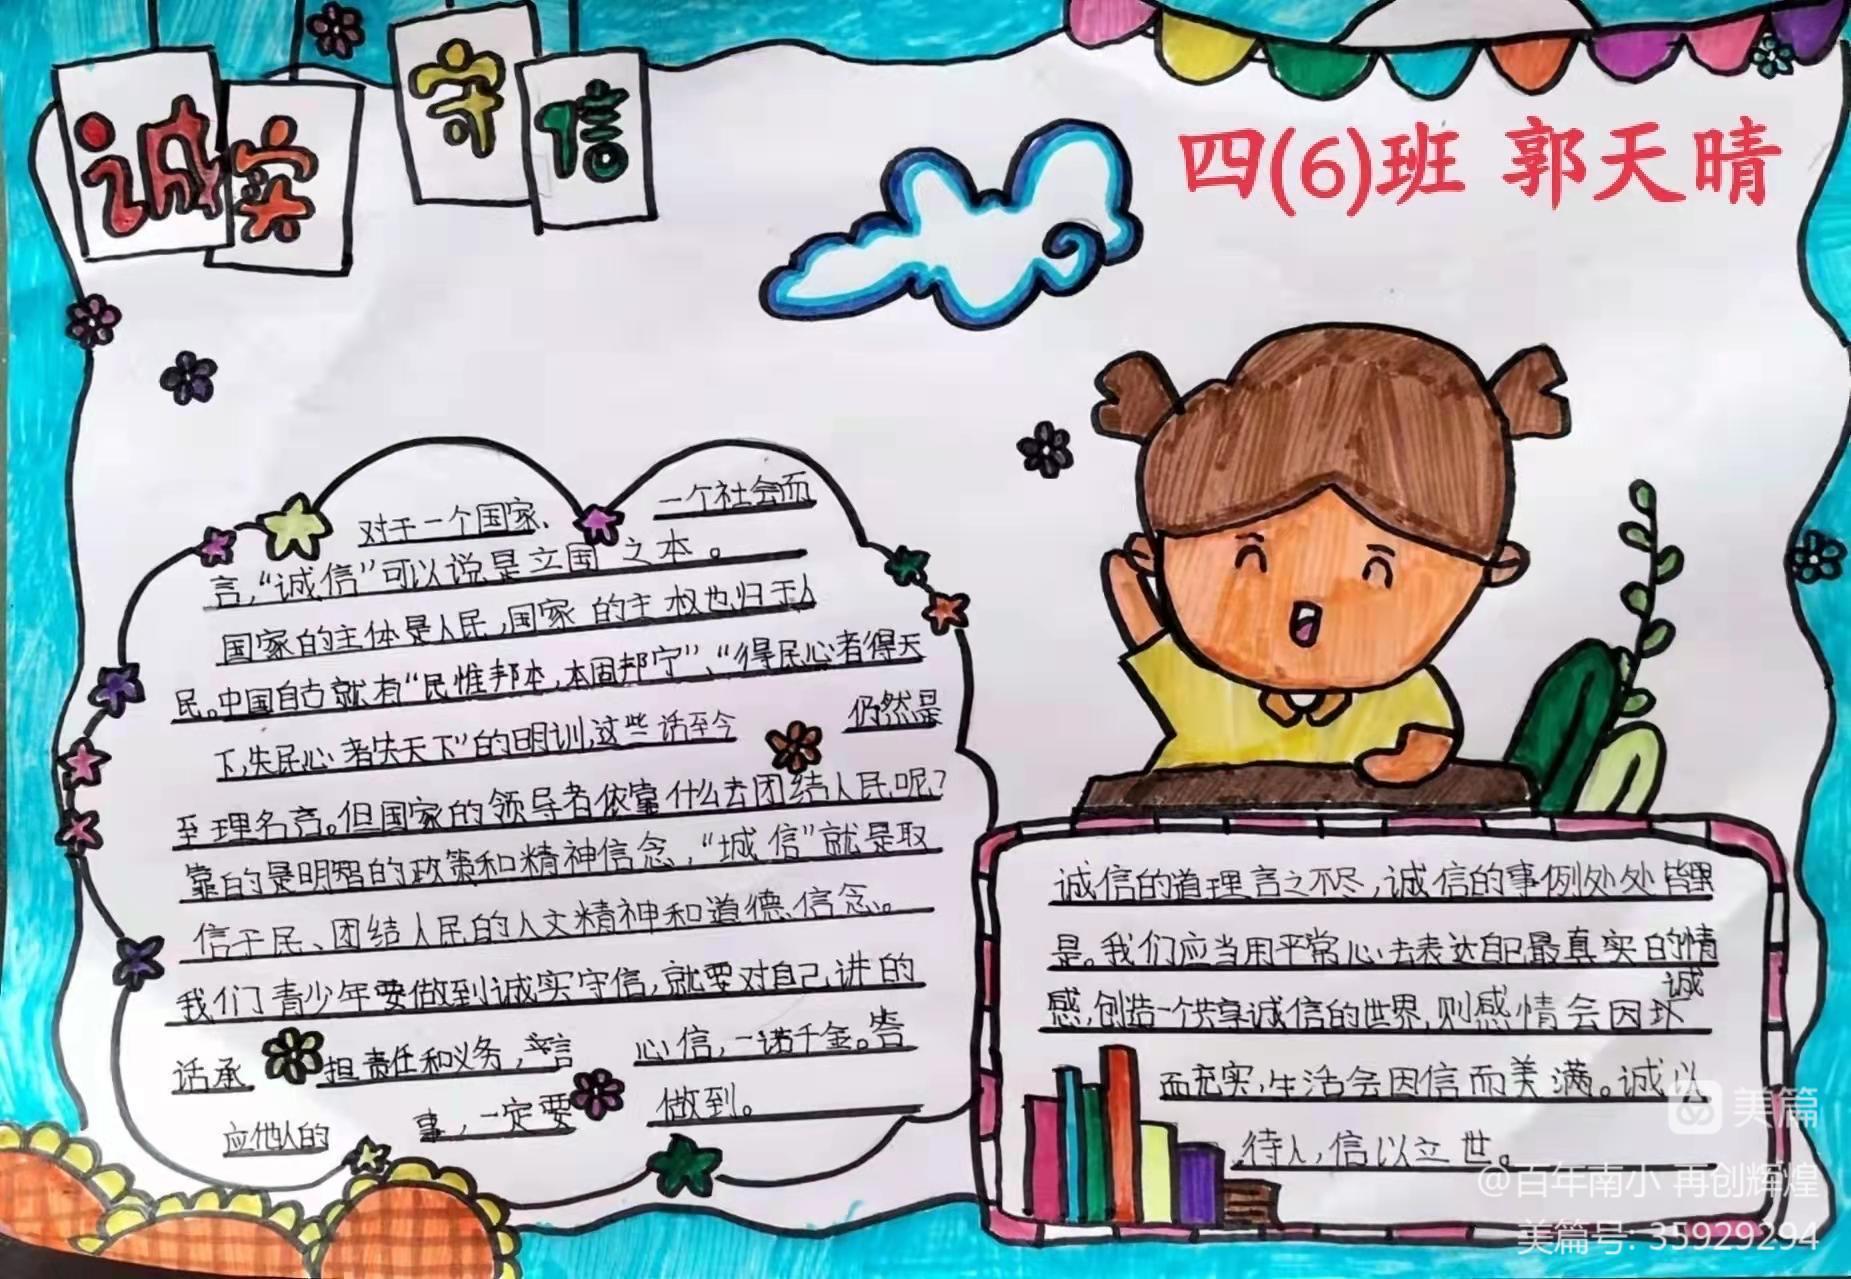 诚实
守信
四(6)班 郭天晴
对于一个国家、 一个社会而
言，“诚信”可以说是立国之本。
国家的主体是人民，国家的主权也归于人
民。中国自古就有“民惟邦本，本固邦宁”、“得民心者得天
下，失民心者失天下”的明训，这些话至今 仍然是
至理名言。但国家的领导者依靠什么去团结人民呢？
靠的是明智的政策和精神信念，“诚信”就是取
信于民、团结人民的人文精神和道德信念。
我们青少年要做到诚实守信，就要对自己讲的
话承 担责任和义务，言 心信，一诺千金。答
应他人的 事，一定要 做到。
诚信的道理言之不尽，诚信的事例处处皆
是。我们应当用平常心去表达自己最真实的情
感，创造一个共享诚信的世界，则感情会因诚
而充实，生活会因信而美满。诚以
待人，信以立世。
美篇
@百年南小 再创辉煌
美篇号: 35929294